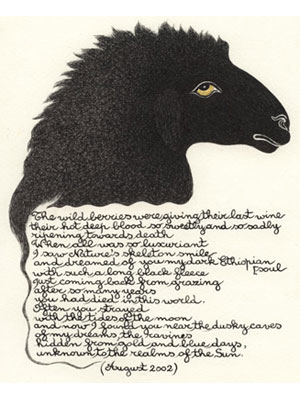 The wild berries were giving their last wine
their hot deep blood so sweetly and so sadly
ripening towards death
When all was so luxuriant
I saw Nature's skeleton smile
and dreamed of you my dark Ethiopian
soul
with such a long black fleece
just coming back from grazing
after so many years
you had died in this world.
Often you strayed
with the tides of the moon
and now I found you near the dusky caves
of my dreams the ravines
hidden from gold and blue days,
unknown to the realms of the Sun.
(August 2002)